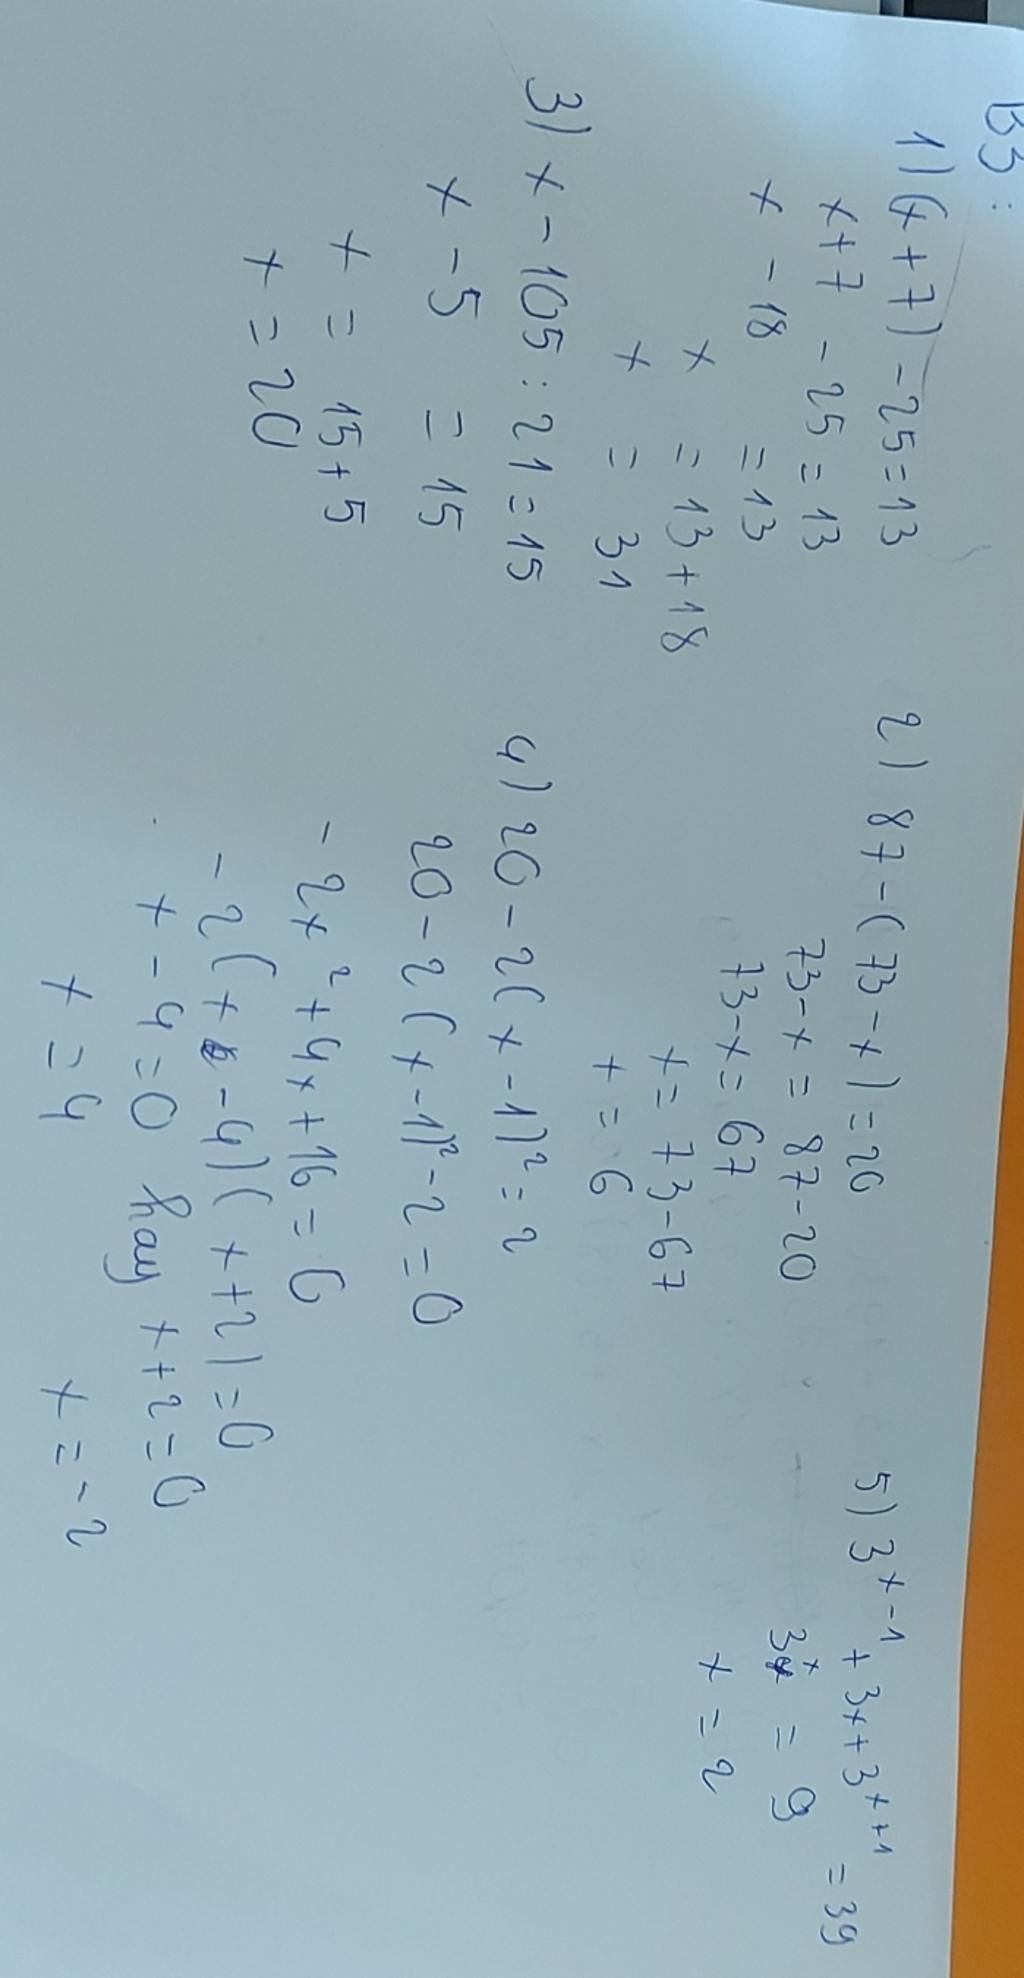 B3:
1) (x + 7) - 25 = 13
x + 7 - 25 = 13
x - 18 = 13
x = 13 + 18
x = 31
2) 87 - (73 - x) = 20
73 - x = 87 - 20
73 - x = 67
x = 73 - 67
x = 6
3) x - 105 : 21 = 15
x - 5 = 15
x = 15 + 5
x = 20
4) 20 - 2(x - 1)² = 2
20 - 2(x - 1)² - 2 = 0
- 2x² + 4x + 16 = 0
- 2(x - 4)(x + 2) = 0
x - 4 = 0 hay x + 2 = 0
x = 4 x = -2
5) 3ˣ⁻¹ + 3x + 3ˣ⁺¹ = 39
3ˣ = 9
x = 2